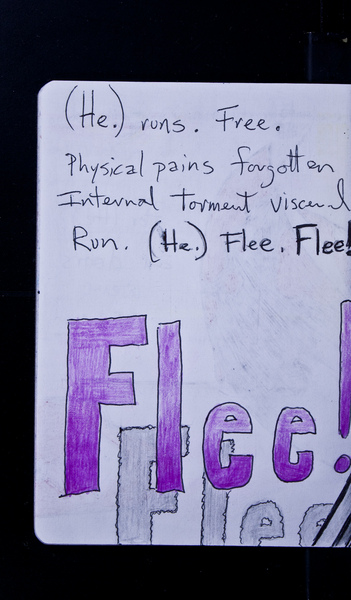 (He.) runs. Free.
Physical pains forgotten
Internal torment visceral
Run. (He.) Flee. Flee!
Flee!
Flee